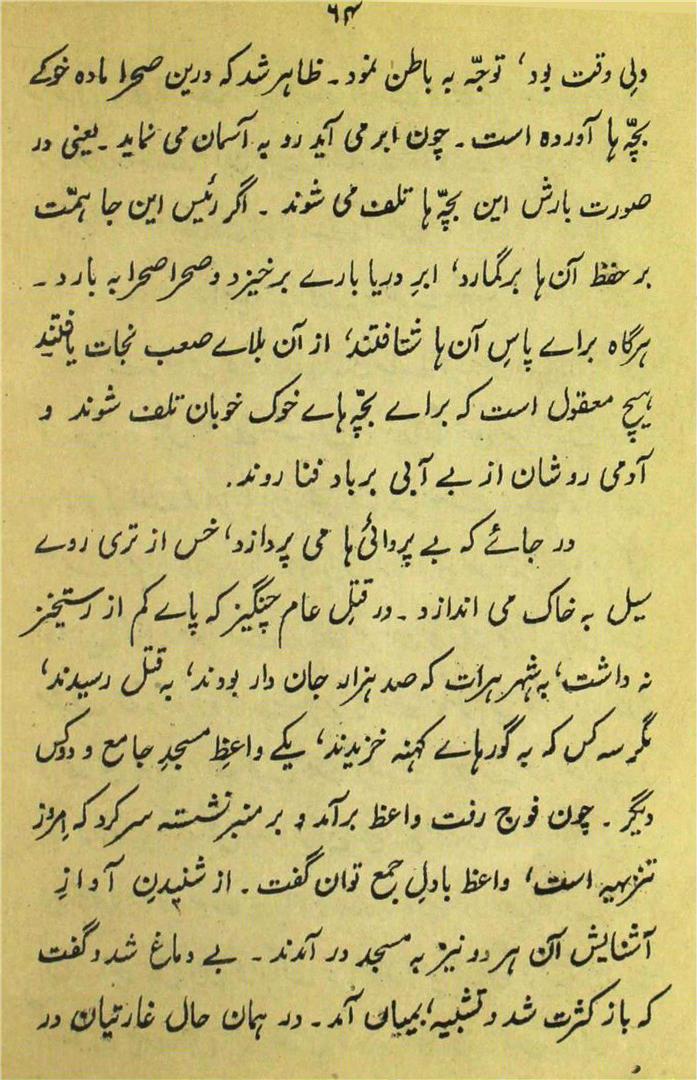 ۶۴
ولیِ وقت بود، توجّہ بہ باطن نمود۔ ظاہر شد کہ درین صحرا مادہ خوکے
بچّہ ہا آوردہ است۔ چون ابر می آید رو بہ آسمان می نماید۔ یعنی در
صورت بارش این بچّہ ہا تلف می شوند۔ اگر رئیس این جا ہمّت
بر حفظ آن ہا برگمارد، ابرِ دریا بارے برخیزد و صحرا صحرا بہ بارد۔
ہرگاہ براے پاسِ آن ہا شتافتند، از آن بلاے صعب نجات یافتند
ہیچ معقول است کہ براے بچّہ ہاے خوک خوبان تلف شوند و
آدمی روشان از بے آبی برباد فنا روند.
در جائے کہ بے پروائی ہا می پردازد، خس از تری روے
سیل بہ خاک می اندازد۔ در قتلِ عام چنگیز کہ پاے کم از رستخیز
نہ داشت، بہ شہر ہرات کہ صد ہزار جان دار بودند، بہ قتل رسیدند،
مگر سہ کس کہ بہ گورہاے کہنہ خزیدند، یکے واعظِ مسجدِ جامع و دو کس
دیگر۔ چون فوج رفت واعظ برآمد و بر منبر نشستہ سر کرد کہ امروز
تنزیہیہ است، واعظ بادلِ جمع توان گفت۔ از شنیدنِ آوازِ
آشنایش آن ہر دو نیز بہ مسجد در آمدند۔ بے دماغ شد و گفت
کہ باز کثرت شد و تشبیہ بمیان آمد۔ در ہمان حال غارتیان در